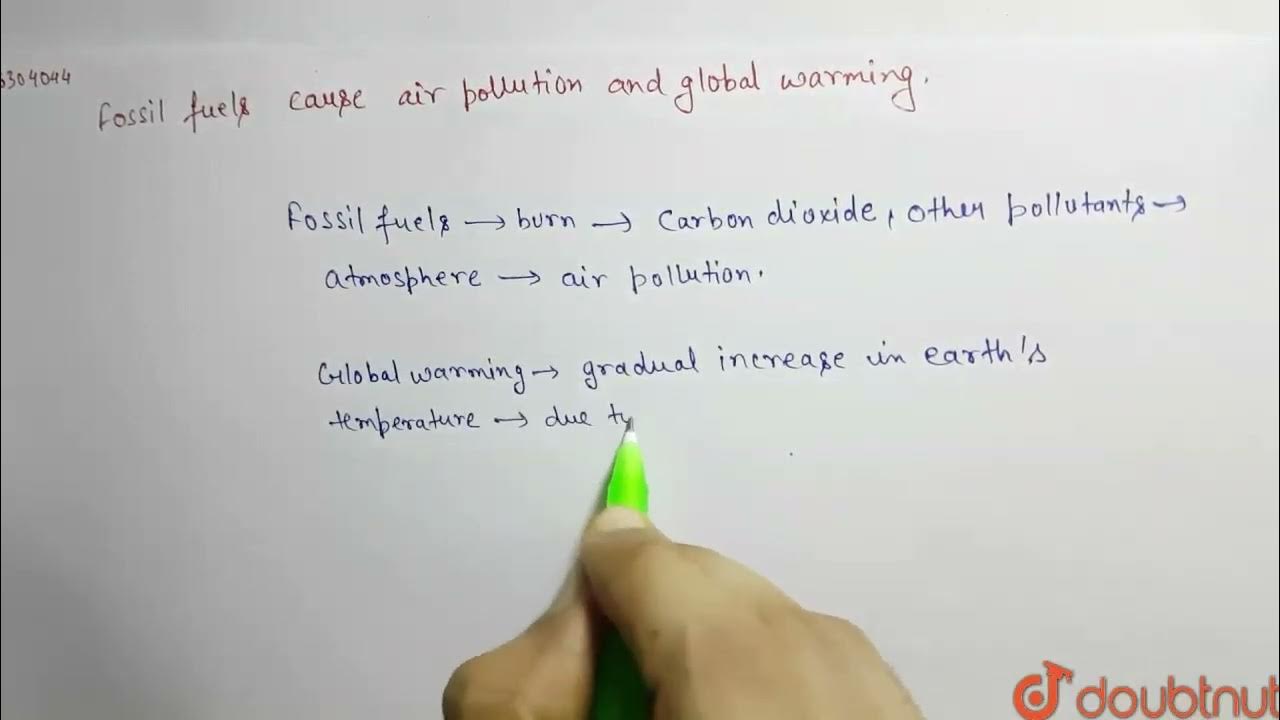 6304044
Fossil fuels cause air pollution and global warming.
Fossil fuels → burn → Carbon dioxide, other pollutants →
atmosphere → air pollution.
Global warming → gradual increase in earth's
temperature → due
doubtnut